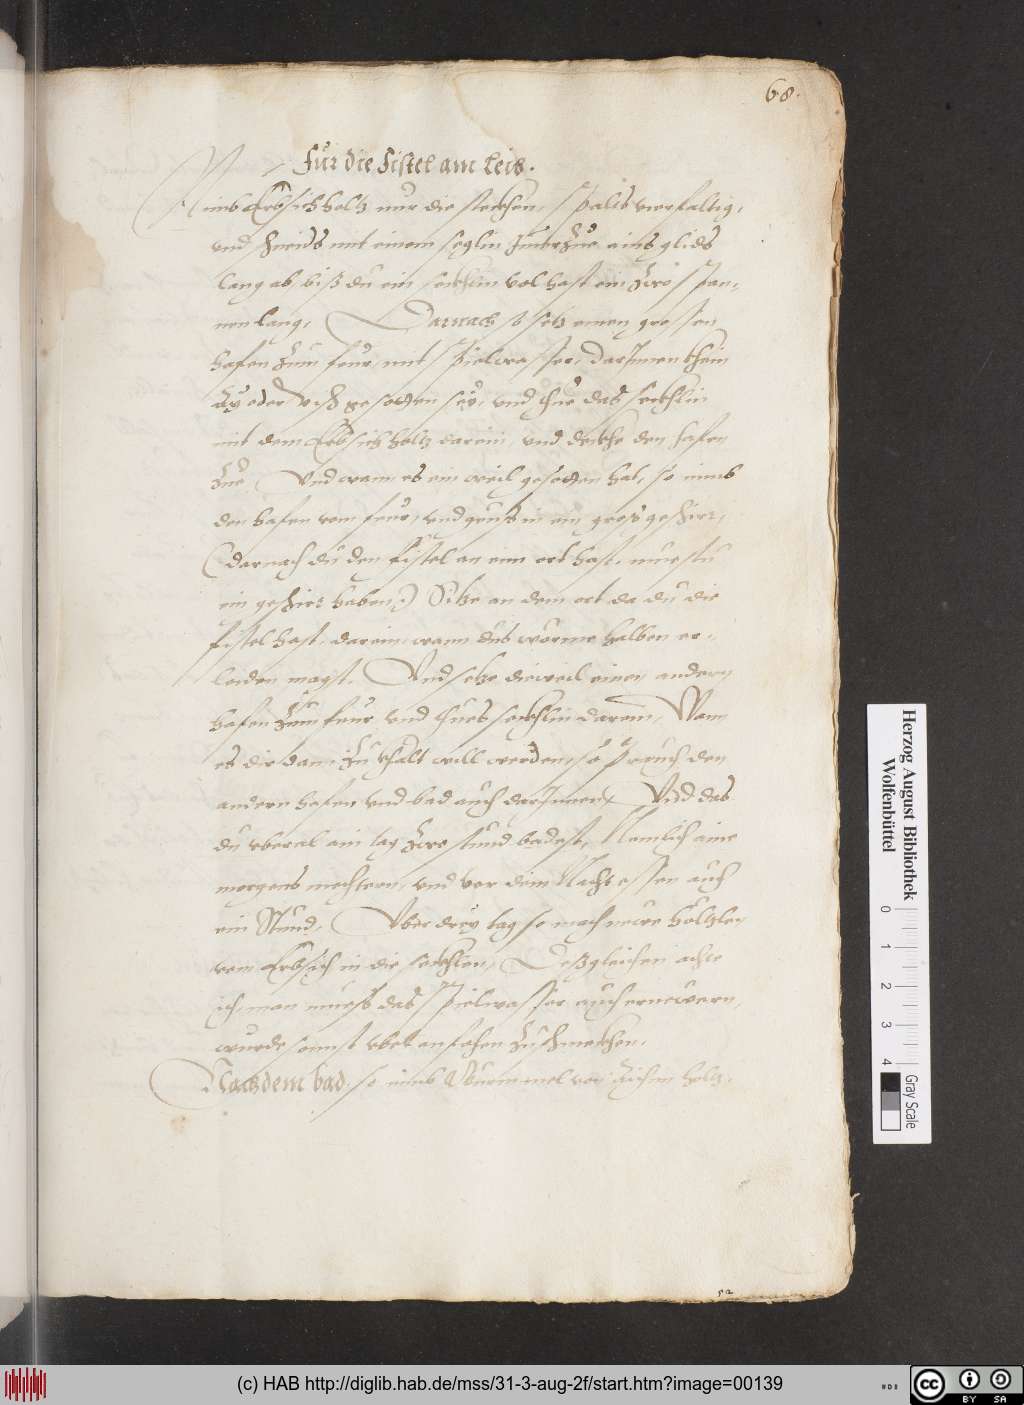 68.
Für die Fistel am Leib.
Nimb Erbsichholtz nur die steckhen, spalts vierfaltig,
vnd schneids mit einem seglin Jmerzue ains glids
lang ab, biß du ein seckhlin vol hast ein zwo span-
nen lang, Darnach so setz einen grossen
hafen zum feur mit spielwasser, darJnnen khein
Ay oder visch gesotten sey, vnd thue das seckhlin
mit dem Erbsichholtz darein, vnd deckhe den hafen
zue, Vnd wann es ein weil gesotten hat, so nimb
den hafen vom feur, vnd geuß in ein groß geschirr,
(darnach du den fistel an eim ort hast, muestu
ein geschirr haben,) Sitze an dem ort da du die
fistel hast, darein, wann dus wörme halben er-
leiden magst. Vnd setze dieweil einen andern
hafen zum feur vnd thues seckhlin darein, Wann
es dir dann zu khalt will werden, so prauch den
andern hafen vnd bad auch darJnnen, Vnd das
du vberal ain tag zwo stund badest, Nemlich aine
morgens nechtern, vnd vor dem Nachtessen auch
ein Stund, Vber drey tag so mach newe höltzlen
vom Erbsich in die seckhlen, Deßgleichen achte
ich, man mueß das spielwasser auch ernewern,
wurde sonnst vbel anfahen zuschmeckhen.
Nach dem bad, so nimb Wurmmel von Aichin holtz,
52
Herzog August Bibliothek
Wolfenbüttel
0
1
2
3
4
Gray Scale
(c) HAB http://diglib.hab.de/mss/31-3-aug-2f/start.htm?image=00139
WDB
cc
BY SA